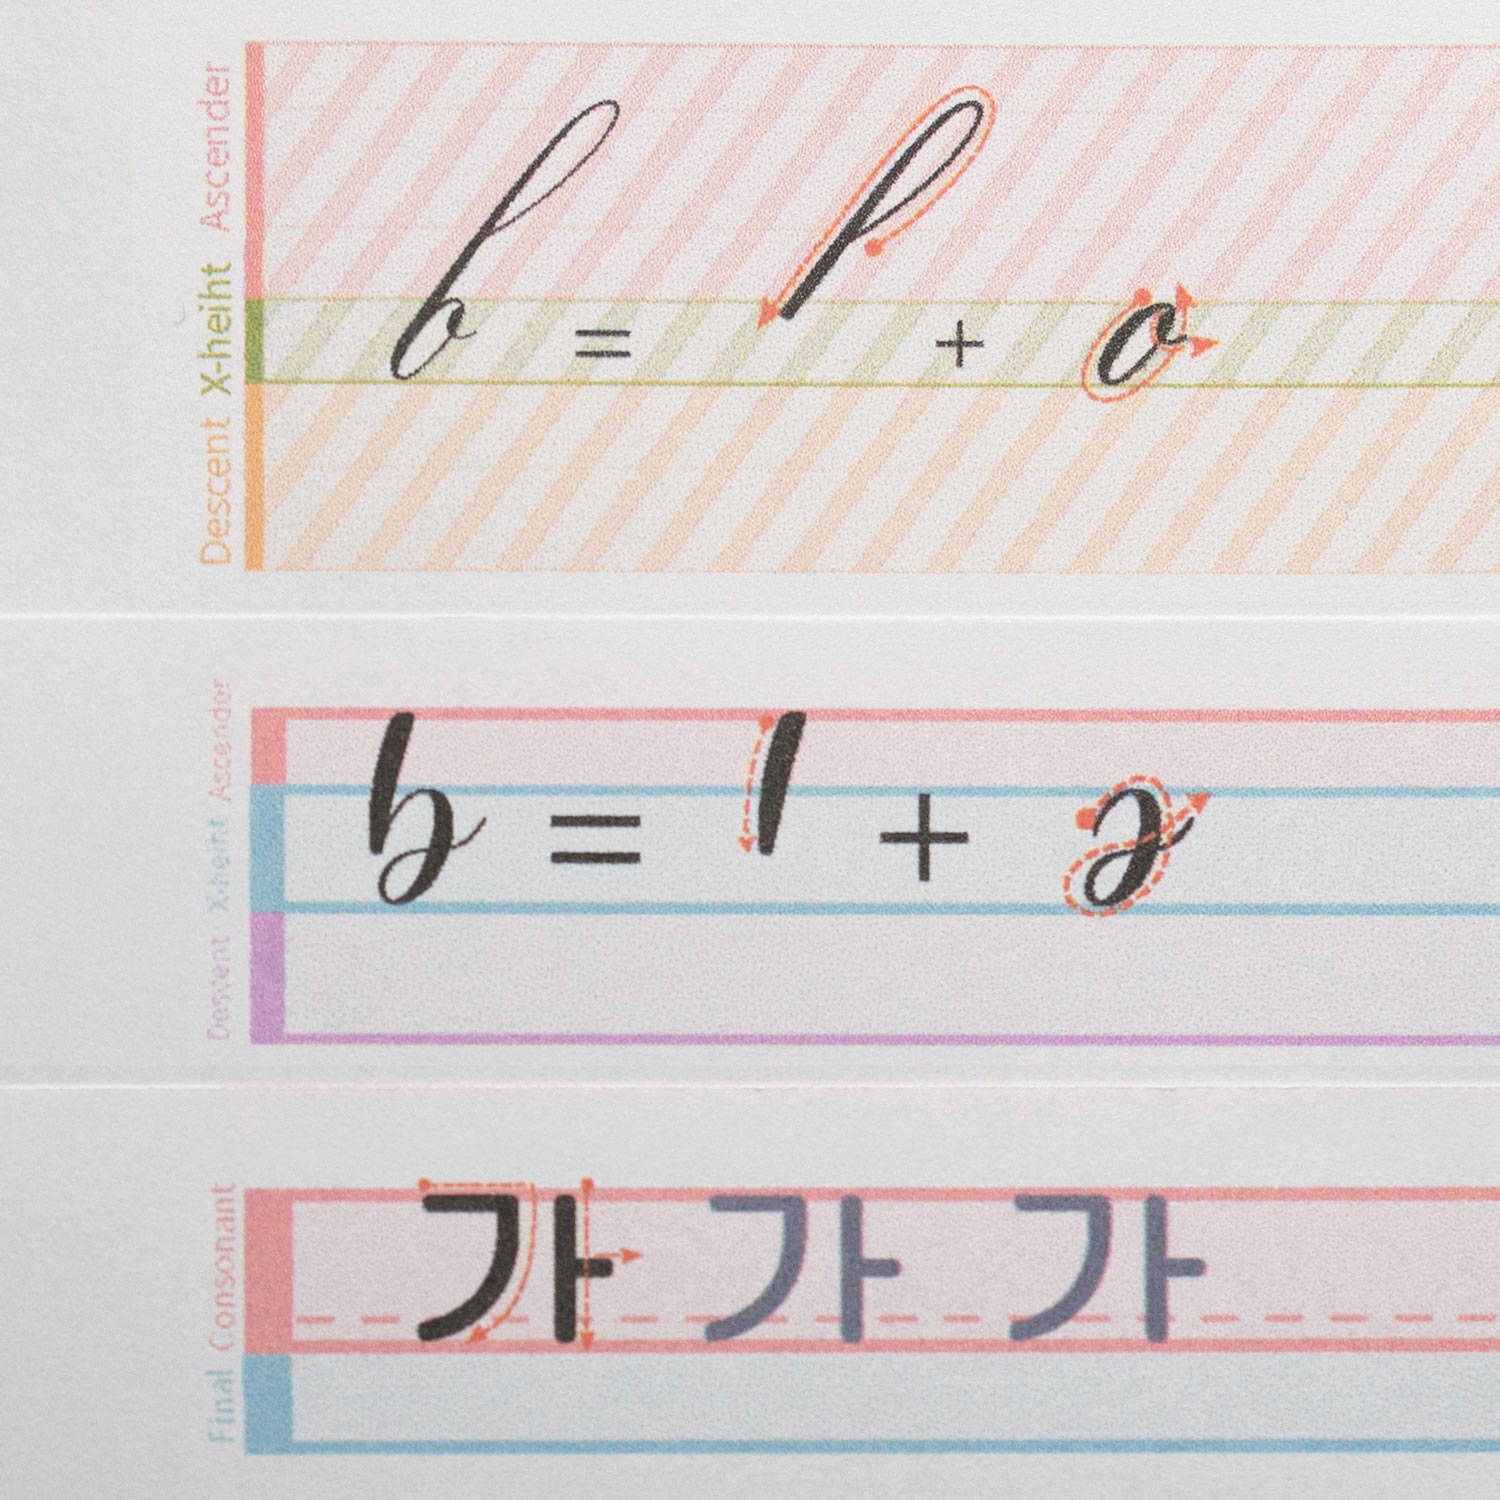 Ascender
X-heiht
Descent
b = l + o
Ascendor
X-heiht
Descent
b = l + a
Consonant
Final
가 가 가